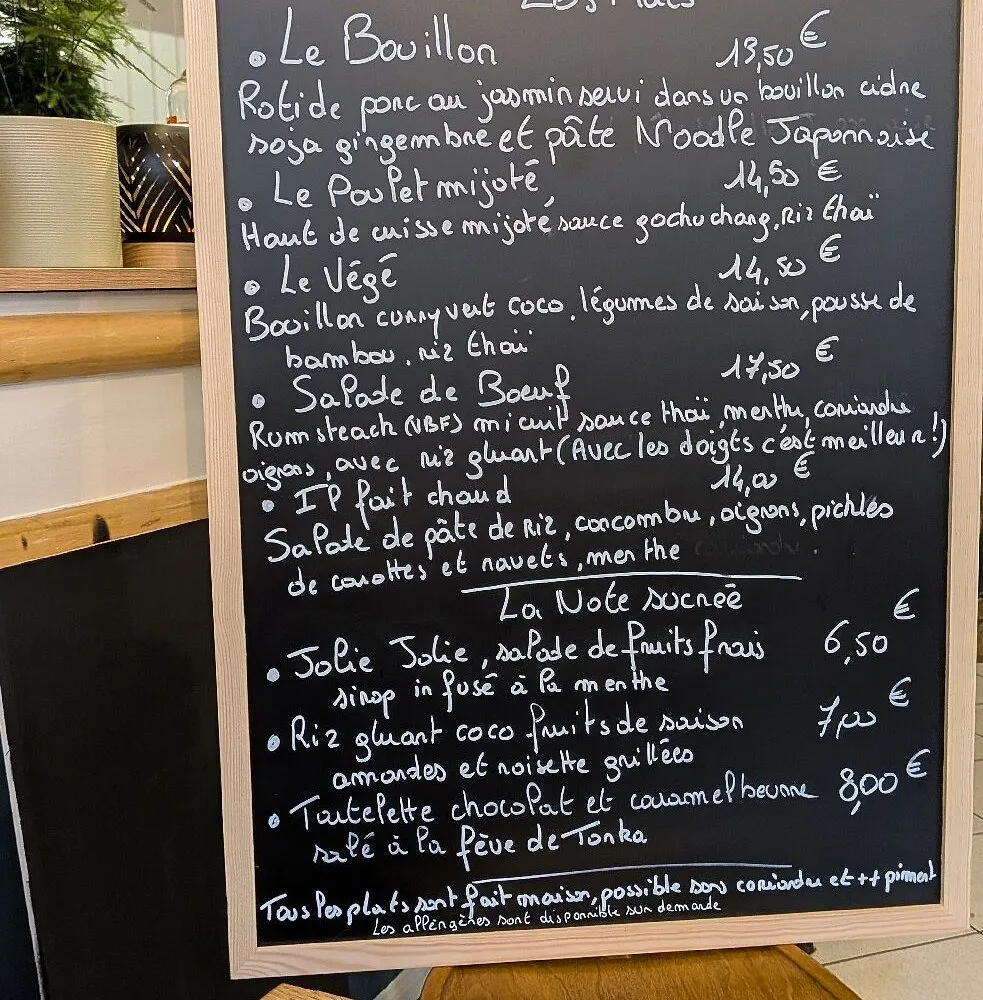 Les Plats
• Le Bouillon 13,50 €
Roti de porc au jasmin servi dans un bouillon cidre
soja gingembre et pâte Noodle Japonnaise
• Le Poulet mijoté 14,50 €
Haut de cuisse mijoté sauce gochuchang, Riz thaï
• Le Végé 14,50 €
Bouillon curry vert coco, légumes de saison, pousse de
bambou, riz thaï
• Salade de Boeuf 17,50 €
Rumsteack (VBF) mi cuit sauce thaï, menthe, coriandre
oignons, avec riz gluant (Avec les doigts c'est meilleur!)
• IP fait chaud 14,00 €
Salade de pâte de Riz, concombre, oignons, pichles
de carottes et navets, menthe
La Note sucrée
• Jolie Jolie, salade de fruits frais 6,50 €
sirop infusé à la menthe
• Riz gluant coco fruits de saison 7,00 €
amandes et noisette grillées
• Tartelette chocolat et caramel beurre 8,00 €
salé à la fève de Tonka
Tous les plats sont fait maison, possible sans coriandre et ++ piment
Les allèrgènes sont disponnible sur demande